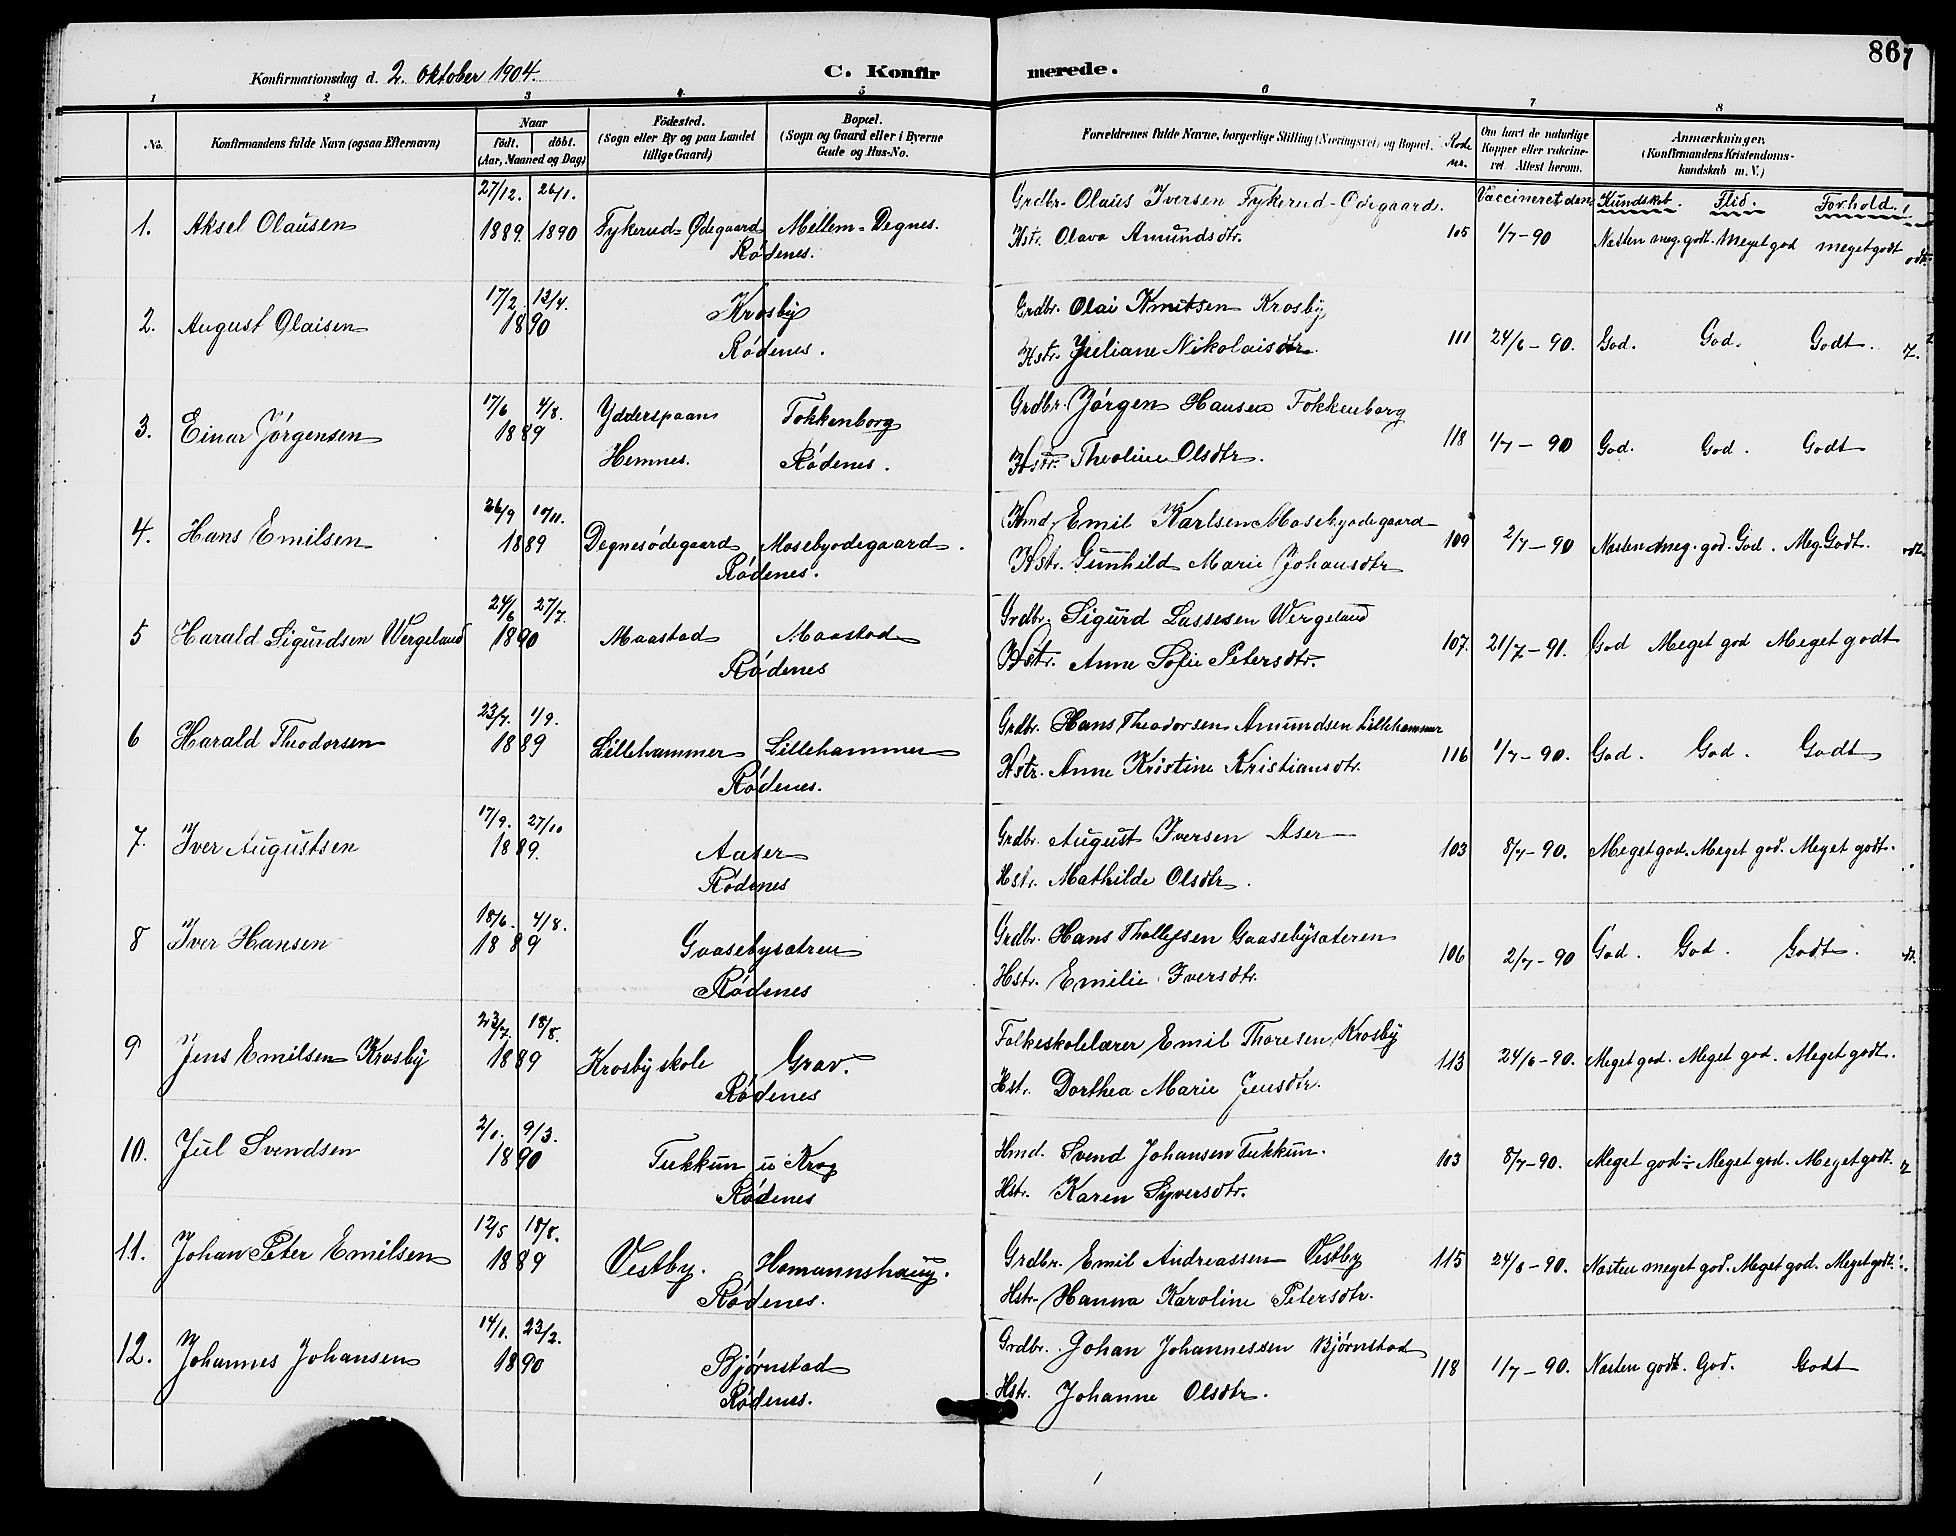 86
Konfirmationsdag d. 2. Oktober 1904. C. Konfirmerede.
1 2 3 4 5 6 7 8
No. Konfirmandens fulde Navn (ogsaa Efternavn) Naar født. døbt. (Aar, Maaned og Dag) Fødested. (Sogn eller By og paa Landet tillige Gaard) Bopæl. (Sogn og Gaard eller i Byerne Gade og Hus-No.) Forældrenes fulde Navne, borgerlige Stilling (Næringsvei) og Bopæl. Om havt de naturlige Kopper eller vaccineret. Attest herom. Anmærkninger. (Konfirmandens Kristendomskundskab m. V.)
Vaccineret den Kundskab. Flid. Forhold.
1. Aksel Olausen 27/12. 1889. 26/1. 1890 Fykerud-Ødegaard Mellem-Degnes. Rödenes. Grdbr. Olaus Iversen Fykerud-Ødegaard.
Hstr. Olava Amundsdtr. 105 1/7-90 Næsten meg. godt. Meget god Meget godt
2. August Olaisen 17/2. 13/4. 1890 Krosby Rödenes. Grdbr. Olai Knutsen Krosby
Hstr. Juliane Nikolaisdtr. 111 24/6-90. God. God. Godt.
3. Einar Jörgensen 17/6 4/8. 1889 Ydderspaan Hemnes. Fokkenborg Rödenes. Grdbr. Jörgen Hansen Fokkenborg
Hstr. Theoline Olsdtr. 118 1/7-90 God. God. Godt
4. Hans Emilsen 26/9 10/11. 1889 Degnesödegaard Mosebyodegaard. Rödenes. Hmd. Emil Karlsen Mosebyodegaard
Hstr. Gunhild Marie Johansdtr 109 2/7-90 Næsten meg. god. God. Meg. Godt.
5 Harald Sigurdsen Wergeland 24/6 27/7. 1890 Maastad Maastad Rödenes Grdbr. Sigurd Lassesen Wergeland
Hstr. Anne Sofie Petersdtr. 107. 21/7-91. God Meget god Meget godt
6 Harald Theodorsen 23/7. 1/9. 1889 Lillehammer Lillehammer Rödenes. Grdbr. Hans Theodorsen Amundsen Lillehammer
Hstr. Anne Kristine Kristiansdtr. 116 1/7-90. God. God. Godt
7. Iver Augustsen 17/9. 27/10 1889. Aaser Rödenes Grdbr. August Iversen Aser
Hstr. Mathilde Olsdtr. 103 8/7-90. Meget god. Meget god. Meget godt.
8 Iver Hansen 18/6. 4/8. 1889 Gaasebysætren Rödenes Grdbr. Hans Thollefsen Gaasebysæteren
Hstr. Emilie Iversdtr. 106 2/7-90 God. God. Godt.
9 Jens Emilsen Krosby 23/7. 18/8. 1889 Krosby skole Grav. Rödenes Folkeskolelærer Emil Thoresen Krosby
Hstr. Dorthea Marie Jensdtr. 113 24/6-90. Meget god. Meget god. Meget godt.
10. Jul Svendsen 2/1. 9/3. 1890 Tukkun u Krog Rödenes Hmd. Svend Johansen Tukkun.
Hstr. Karen Syversdtr. 103 8/7-90. Meget god÷ Meget god. Meget godt.
11. Johan Peter Emilsen 12/5 18/8. 1889 Vestby. Homannshaug. Rödenes. Grdbr. Emil Andreassen Vestby
Hstr. Hanna Karoline Petersdtr. 115 24/6-90. Næsten meget god. Meget god. Meget godt.
12. Johannes Johansen 14/1. 23/2. 1890 Bjørnstad Rödenes. Grdbr. Johan Johannessen Bjørnstad
Hstr. Johanne Olsdtr. 118 1/7-90. Næsten godt. God. Godt